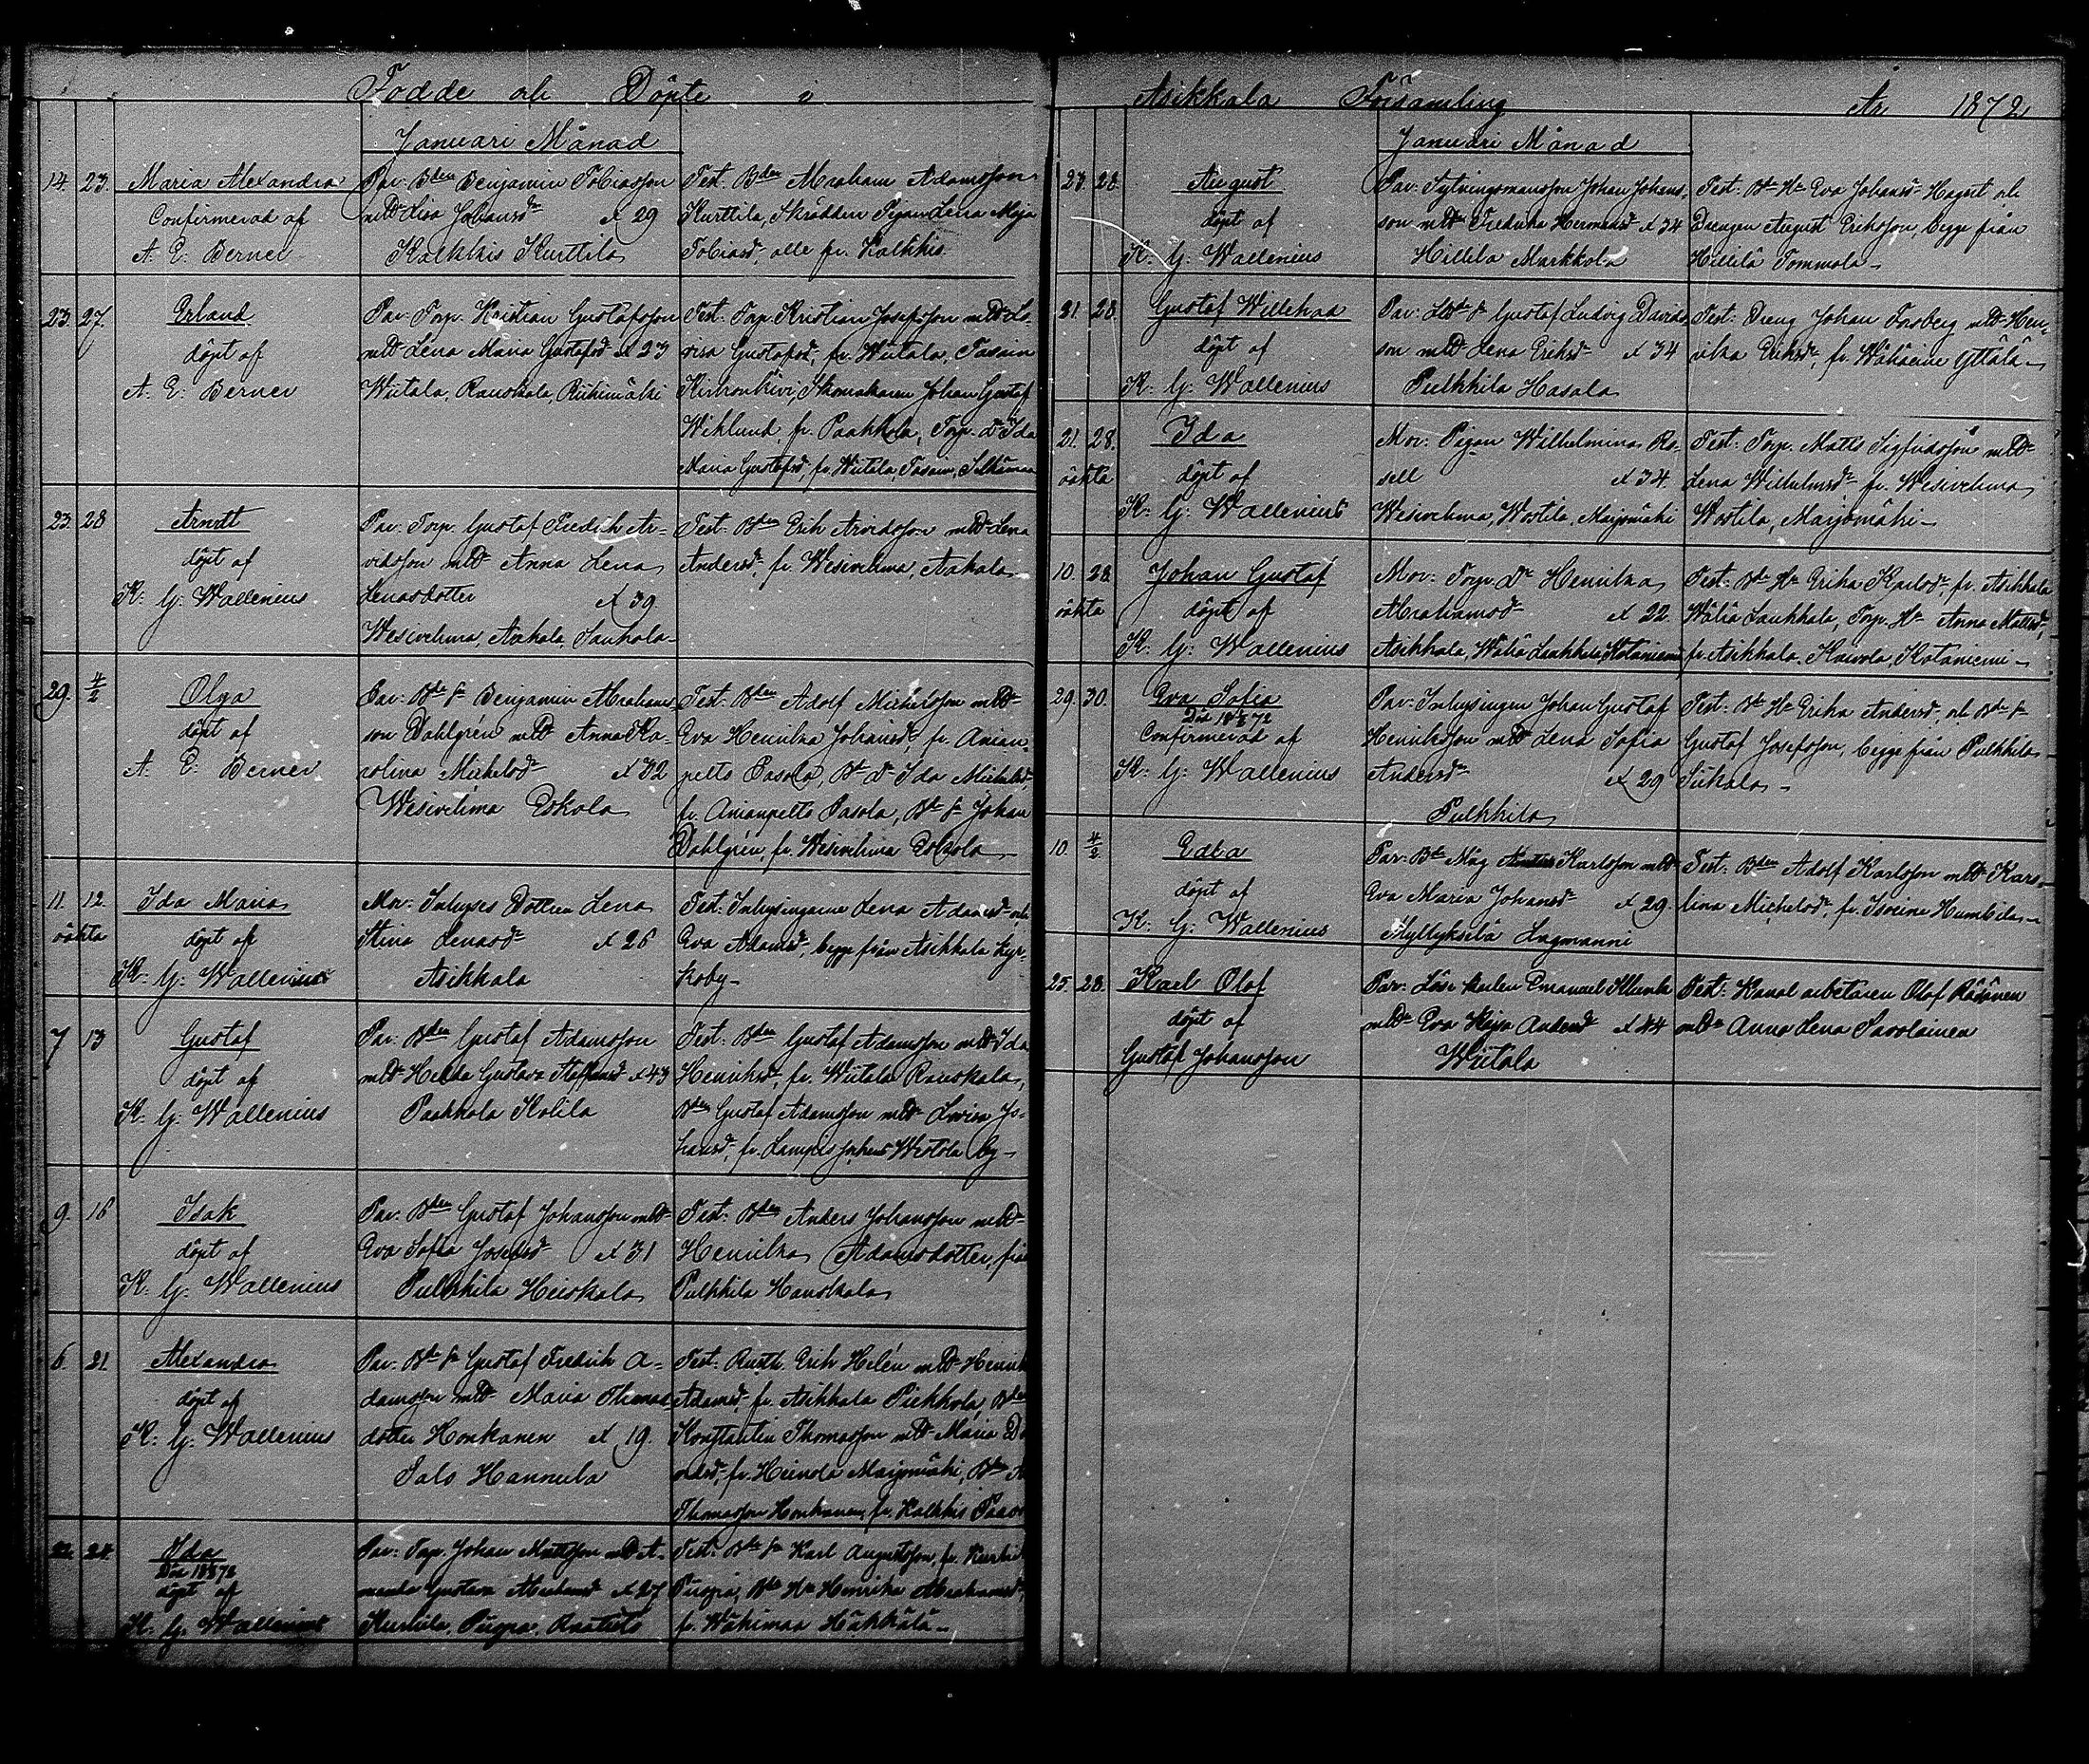 Födde och Döpte i
Januari Månad
14. 23. Maria Alexandra
Confirmerad af
A. E. Berner
Par: Bden Benjamin Tobiasson
mld Lisa Johansdr æt 29
Kalkkis Kurttila
Test. Bden Abraham Adamsson
Kurttila, Skräddere Pigan Lena Maja
Tobiasd, alle fr. Kalkkis.
23. 27. Erland
döpt af
A. E. Berner
Par: Torp. Kristian Gustafsson
mld Lena Maria Gustafsd æt 23
Wiitala, Rauskala, Riihimäki
Test. Torp. Kristian Josefsson mld Lo-
visa Gustafsd, fr. Wiitala, Tasain
Kirkonkivi, Skomakaren Johan Gustaf
Wiklund, fr. Paakkola, Torp. dr Ida
Maria Gustafsd, fr. Wiitala, Tasain,
23. 28 Arvid
döpt af
K. G. Wallenius
Par: Torp. Gustaf Fredrik Ar-
vidsson mld Anna Lena
Lenasdotter æt 39.
Wesivehma, Aakala,
Test: Bden Erik Arvidsson mld Lena
Andersdr, fr. Wesivehma, Aakala
29. 4/2 Olga
döpt af
A. E. Berner
Par: Bde sn Benjamin Abrahams
son Dahlgrén mld Anna Ka-
rolina Mickelsdr æt 32
Wesivehma Eskola
Test: Bden Adolf Mickelsson mld
Eva Henrika Johansd, fr. Anian-
pelto Pasola, Bd dr Ida Mickelsd,
fr. Anianpelto Pasola, Bde sn Johan
Dahlgrén, fr. Wesivehma Eskola
11. 12. Ida Maria
oäkta
döpt af
K. G. Wallenius
Mor: Inhyses Dottren Lena
Stina Lenasdr æt 26
Asikkala
Test: Inhysingarne Lena Adamsd och
Eva Adamsd, begge från Asikkala kyr-
koby
7 13 Gustaf
döpt af
K. G. Wallenius
Par: Bden Gustaf Adamsson
mld Helena Gustava Staffansd æt 43
Paakkola Kolila
Test: Bden Gustaf Adamsson mld Ida
Henriksd, fr. Wiitala Rauskala,
Bden Gustaf Adamsson mld Lovisa Jo-
hansd, fr. Lampis Jokens Westola by
9. 16 Isak
döpt af
K. G. Wallenius
Par: Bden Gustaf Johansson mld
Eva Sofia Josefsdr æt 31
Pulkkila Heiskala
Test: Bden Anders Johansson mld
Henrika Adamsdotter, från
Pulkkila Hauskala
6. 21. Alexandra
döpt af
K. G. Wallenius
Par: Bde sn Gustaf Fredrik A-
damsson mld Maria Thomas-
dotter Honkanen æt 19.
Salo Hannula
Test: Rusth. Erik Helén mld Henrik
Adamsd, fr. Asikkala Piekkola, Bden
Konstantin Thomasson mld Maria
fr. Heinola Maijomäki, Bden
Thomasson Honkanen, fr. Kalkkis
22. 24. Ida
döpt af
K. G. Wallenius
Par: Torp. Johan Mattsson mld A-
manda Gustava æt 27
Kurhila, Puopia,
Test: Bde sn Karl Augustsson, fr. Kurhila
Puopia, Bde Hu Henrika Abrahamsd,
fr. Wähimaa Häkkälä
Asikkala Församling År 1872
Januari Månad
23. 28. August
döpt af
K. G. Wallenius
Par: Sytningsmansson Johan Johans-
son mld Fredrika Hermansd æt 34
Hillilä Markkola
Test: Bde Hu Eva Johansd Hagert och
Drengen August Eriksson, begge från
Hillilä Tommola
21. 28. Gustaf Willehad
döpt af
K. G. Wallenius
Par: sn Gustaf Ludvig Davids-
son mld Lena Eriksdr æt 34
Pulkkila Hasala
Test: Dreng Johan Forsberg mld Hen-
rika Eriksdr, fr. Wähäime Yttölä
21. 28. Ida
oäkta
döpt af
K. G. Wallenius
Mor: Pigan Wilhelmina Ro-
sell æt 34
Wesivehma, Wostila, Maijomäki
Test: Torp. Matts Sigfridsson mld
Lena Wilhelmsdr fr. Wesivehma
Wostila, Maijomäki
10. 28. Johan Gustaf
oäkta
döpt af
K. G. Wallenius
Mor: Torp. dr Henrika
Abrahamsdr æt 22.
Asikkala, Wähä Laukkala, Kotaniemi
Test: Bde Hu Erika Karlsdr, fr. Asikkala
Wähä Laukkala, Torp. Hu Anna Mattsd,
fr. Asikkala, Kotaniemi
29. 30. Eva Sofia
Confirmerad af
K. G. Wallenius
Par: Inhysingen Johan Gustaf
Henriksson mld Lena Sofia
Andersdr æt 29
Pulkkila
Test: Bde Hu Erika Andersd, och Bde sn
Gustaf Josefsson, begge från Pulkkila
Siikala
10. 4/2 Edla
döpt af
K. G. Wallenius
Par: Bde Måg Karlsson mld
Eva Maria Johansdr æt 29.
Myllykselä Lagmanni
Test: Bden Adolf Karlsson mld Karo-
lina Mickelsdr, fr. Isoeine Humbila
25. 28. Karl Olof
döpt af
Gustaf Johansson
Par: Löse karlen Emanuel
mld Eva Kajsa Andersd æt 44
Wiitala
Test: Kanal arbetaren Olof Räsänen
mld Anna Lena Savolainen